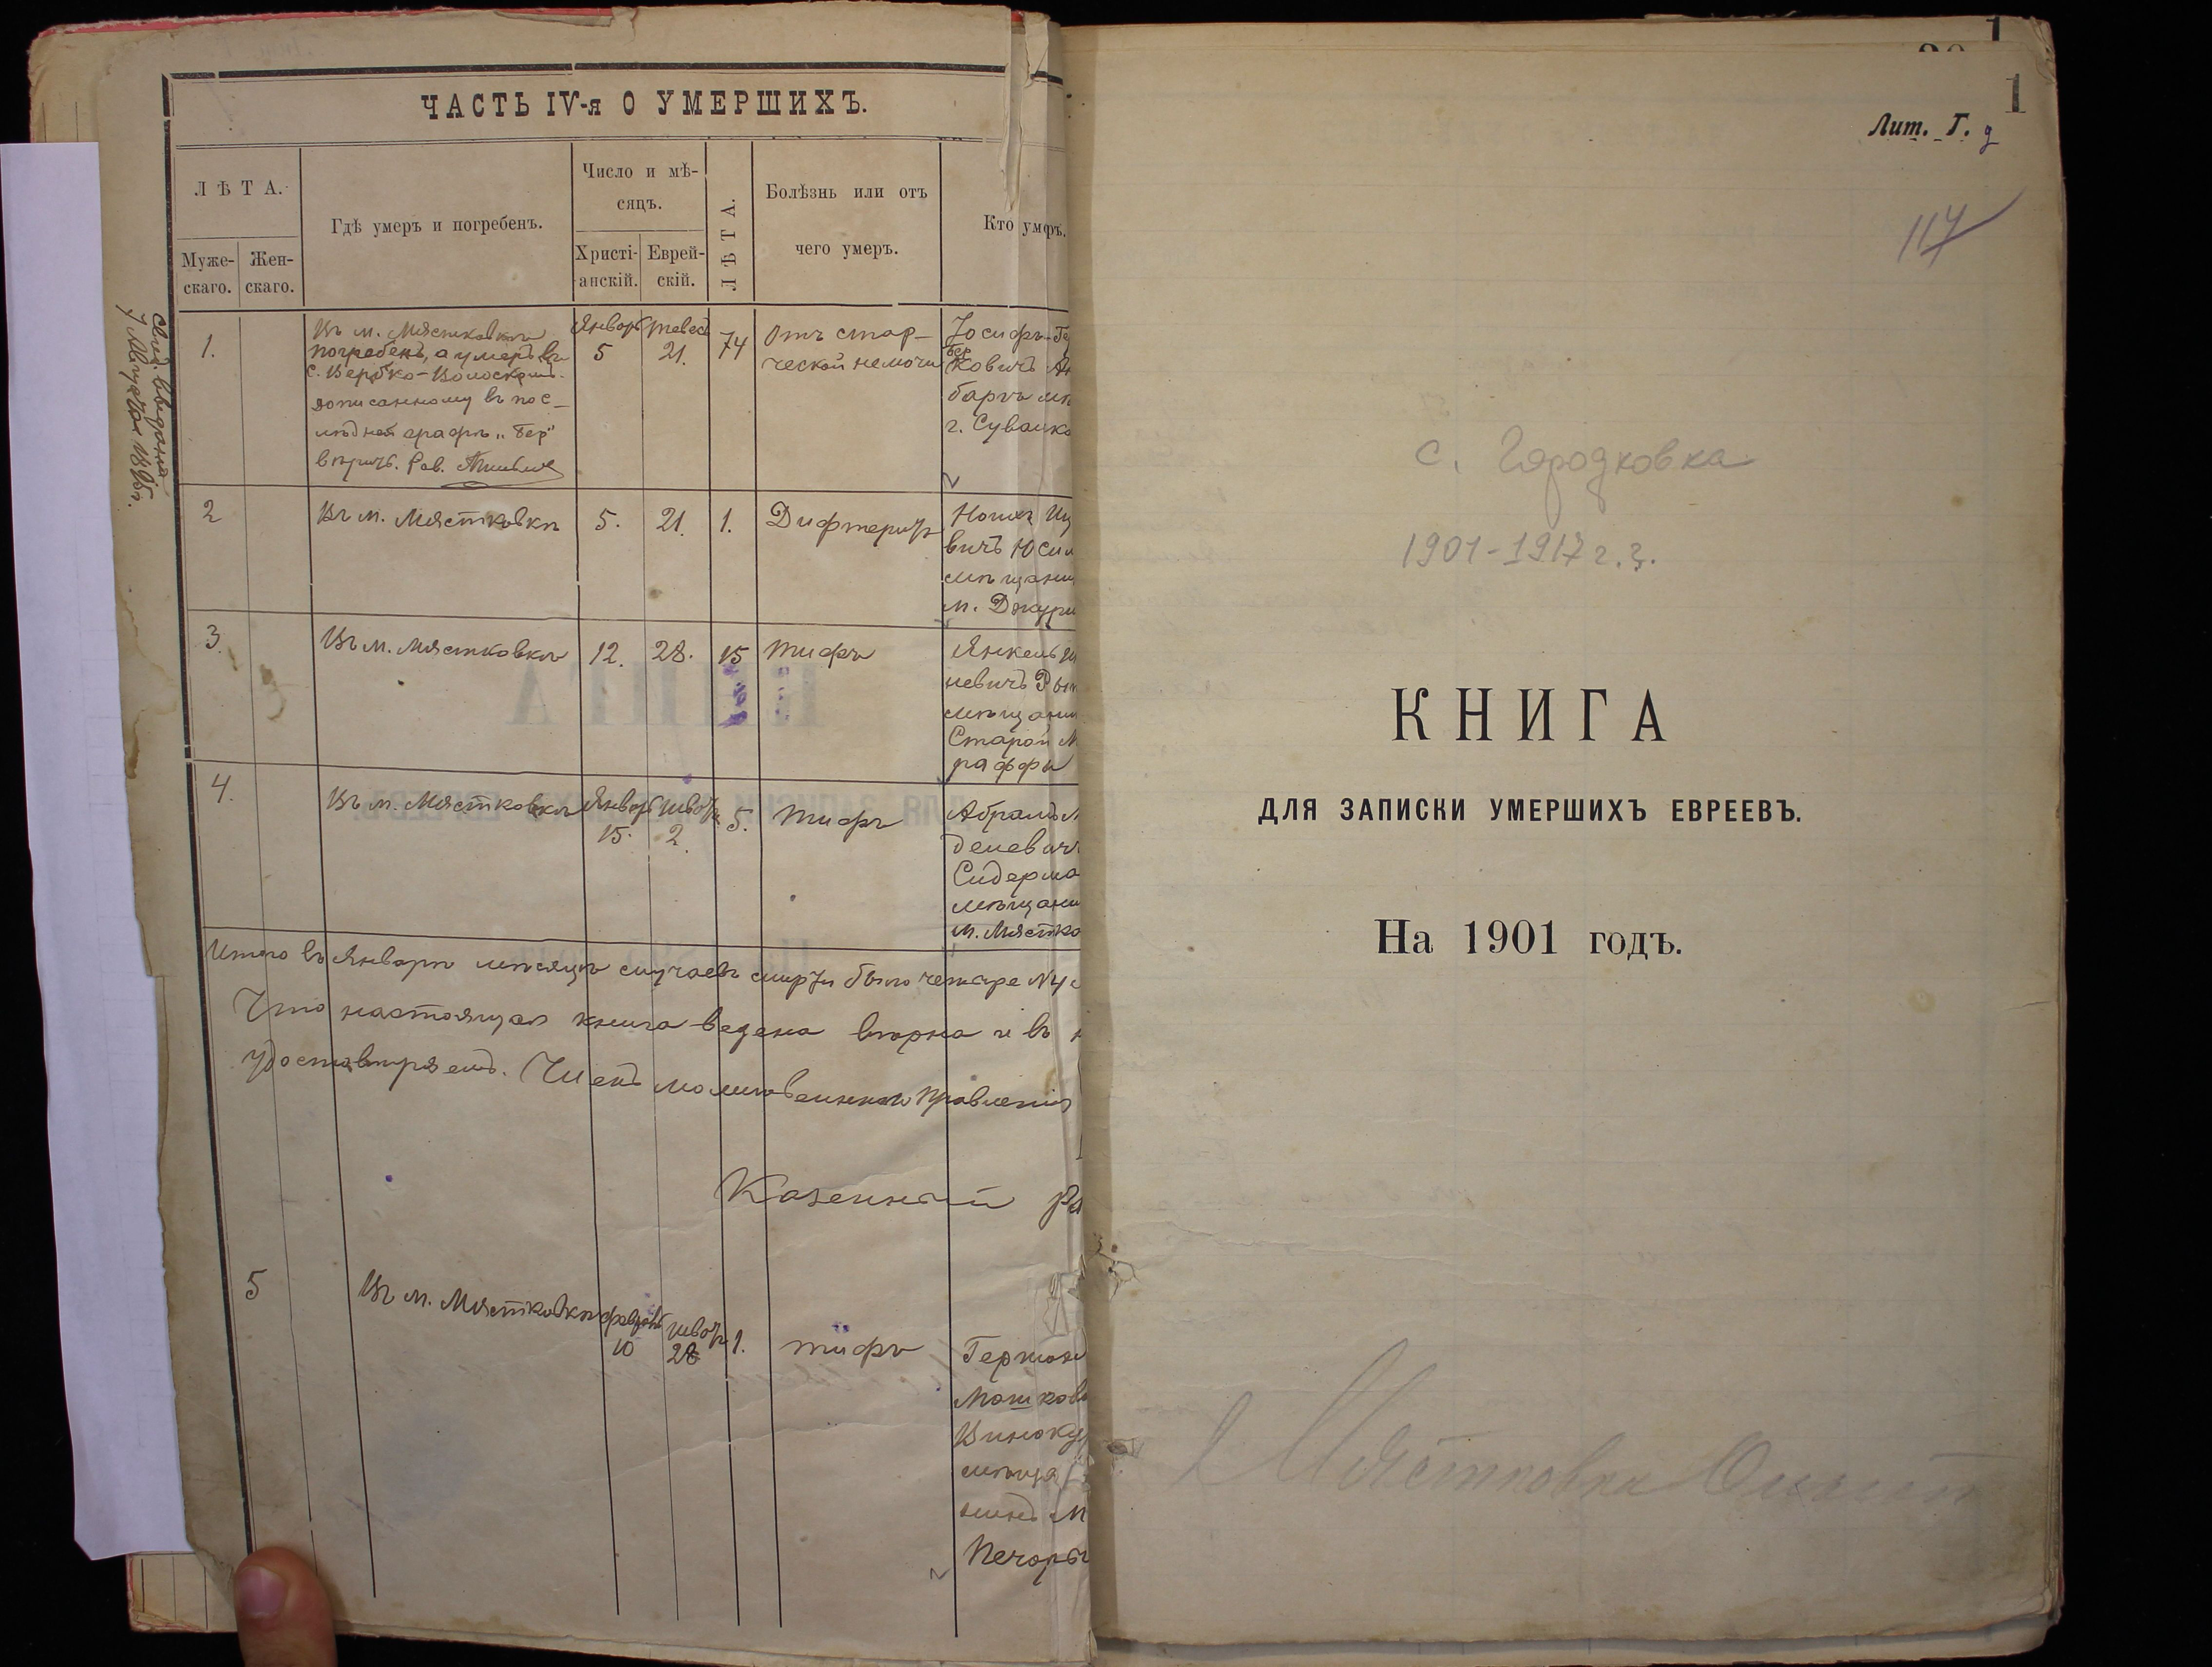 ЧАСТЬ IV-я О УМЕРШИХЪ.
ЛѢТА.
Муже-
скаго.
Жен-
скаго.
Гдѣ умеръ и погребенъ.
Число и мѣ-
сяцъ.
Христі-
анскій.
Еврей-
скій.
ЛѢТА.
Болѣзнь или отъ
чего умеръ.
Кто умеръ.
1.
Въ м. Мястковкѣ
погребенъ, а умеръ въ
с. Вербко-Волоскомъ.
дописанному въ пос-
лѣдней графѣ „Бер"
вѣрить. Рав.
Январь
5
Тевес
21.
74
Отъ стар-
ческой немочи
Іосифъ-Ге
Бер
ковичъ
баръ
г.
2
Въ м. Мястковкѣ
5.
21.
1.
Дифтеритъ
вичъ Юси
мѣщани
м. Джури
3.
Въ м. Мястковкѣ
12.
28.
15
Тифъ
Янкель
невичъ
мѣщани
Старой
4.
Въ м. Мястковкѣ
Январь
15.
Шватъ
2.
5.
Тифъ
Абрамъ М
делевичъ
Сидерма
мѣщани
м. Мястко
Итого въ Январѣ мѣсяцѣ случаевъ смерти было четыре №4
Что настоящая книга ведена вѣрно и въ
удостовѣряемъ. Членъ молитвеннаго Правленія
Казенный Ра
5
Въ м. Мястковкѣ
Февраль
10
Шватъ
28
1.
тифъ
Гершон
Мошкови
Винокур
мѣща
нинъ м
Печоры
Лит. Г.
1
117
с. Городковка
1901-1917 г.г.
КНИГА
ДЛЯ ЗАПИСКИ УМЕРШИХЪ ЕВРЕЕВЪ.
На 1901 годъ.
Мястковка